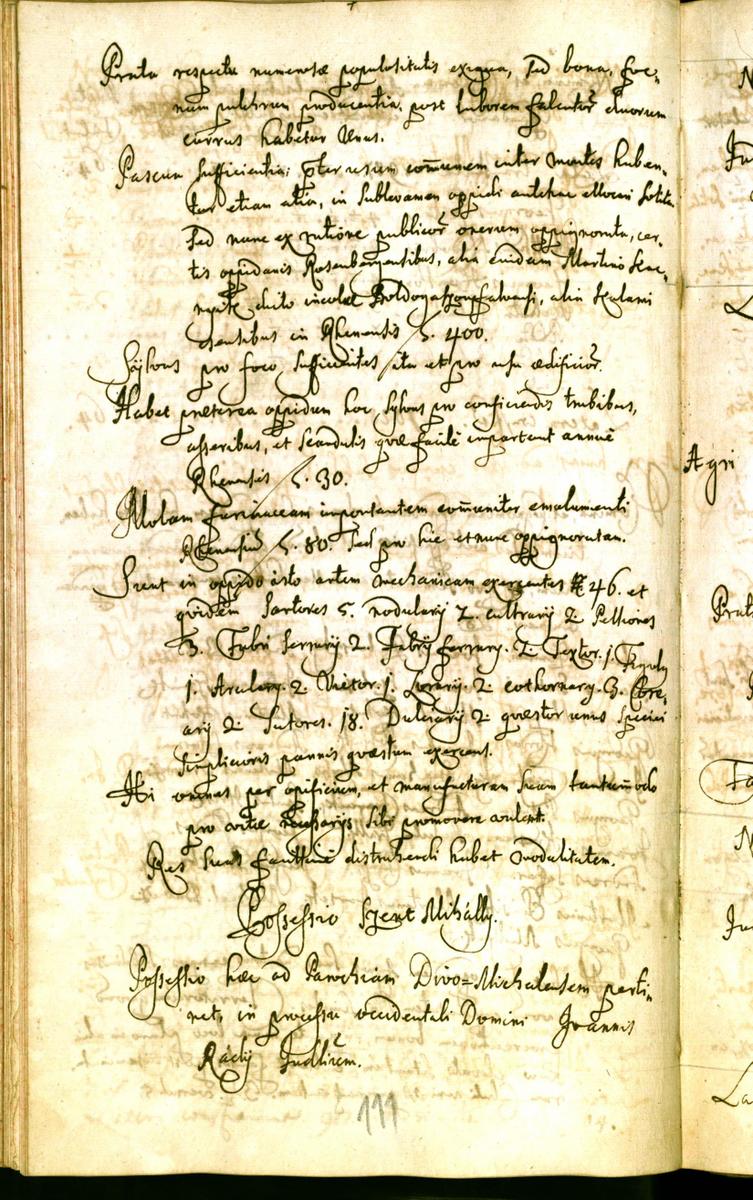 Prata respectu numerosæ populositatis exigua, sed bona, foe-
num pulchrum producentia, post laborem falcator duorum
currus habetur unus.
Pascua sufficientia; pter usum comunem inter montes haben-
tur etiam alia, in sublevamen oppidi antehac elocari solita
sed nunc ex ratione publicor onerum oppignorata, cer-
tis oppidanis Rosenbergensibus, alia cuidam Martino
dicto incolæ alia
in Rhenensis f. 400.
Sylvas pro foco, sufficientes ita et pro usu ædificior.
Habet præterea oppidum hoc, sylvas pro conficiendis trabibus,
asseribus, et scandulis quæ facile important annue
Rhenensis f. 30.
Molam farinaceam importantem comuniter emolumenti
Rhenensiu f. 80. sed pro hic et nunc oppignoratam.
Sunt in oppido isto artem mechanicam exercentes 46. et
quidem Sartores 5. nodularij 2. cultrarij 2. Pelliones
3. Fabri serrarij 2. Fabrij ferrary. 2. Textor. 1.
1. Arculary. 2. Vietor. 1. Lorarij. 2. cothornary. 3.
arij 2. Sutores. 18. Dulciarij 2. quæstor unus speciei
simplicioris pannis quæstum exercent.
Hi omnes per opificium, et manufacturam suam tantumodo
pro vitæ necessarijs sibi promovere valent.
Res suas facile distrahendi habet modalitatem.
Possessio Szent Mihálly.
Possessio hæc ad Parochiam Divo=Michalensem perti-
net, in processu occidentali Domini Joannis
Rády Judlium.
111
Agri